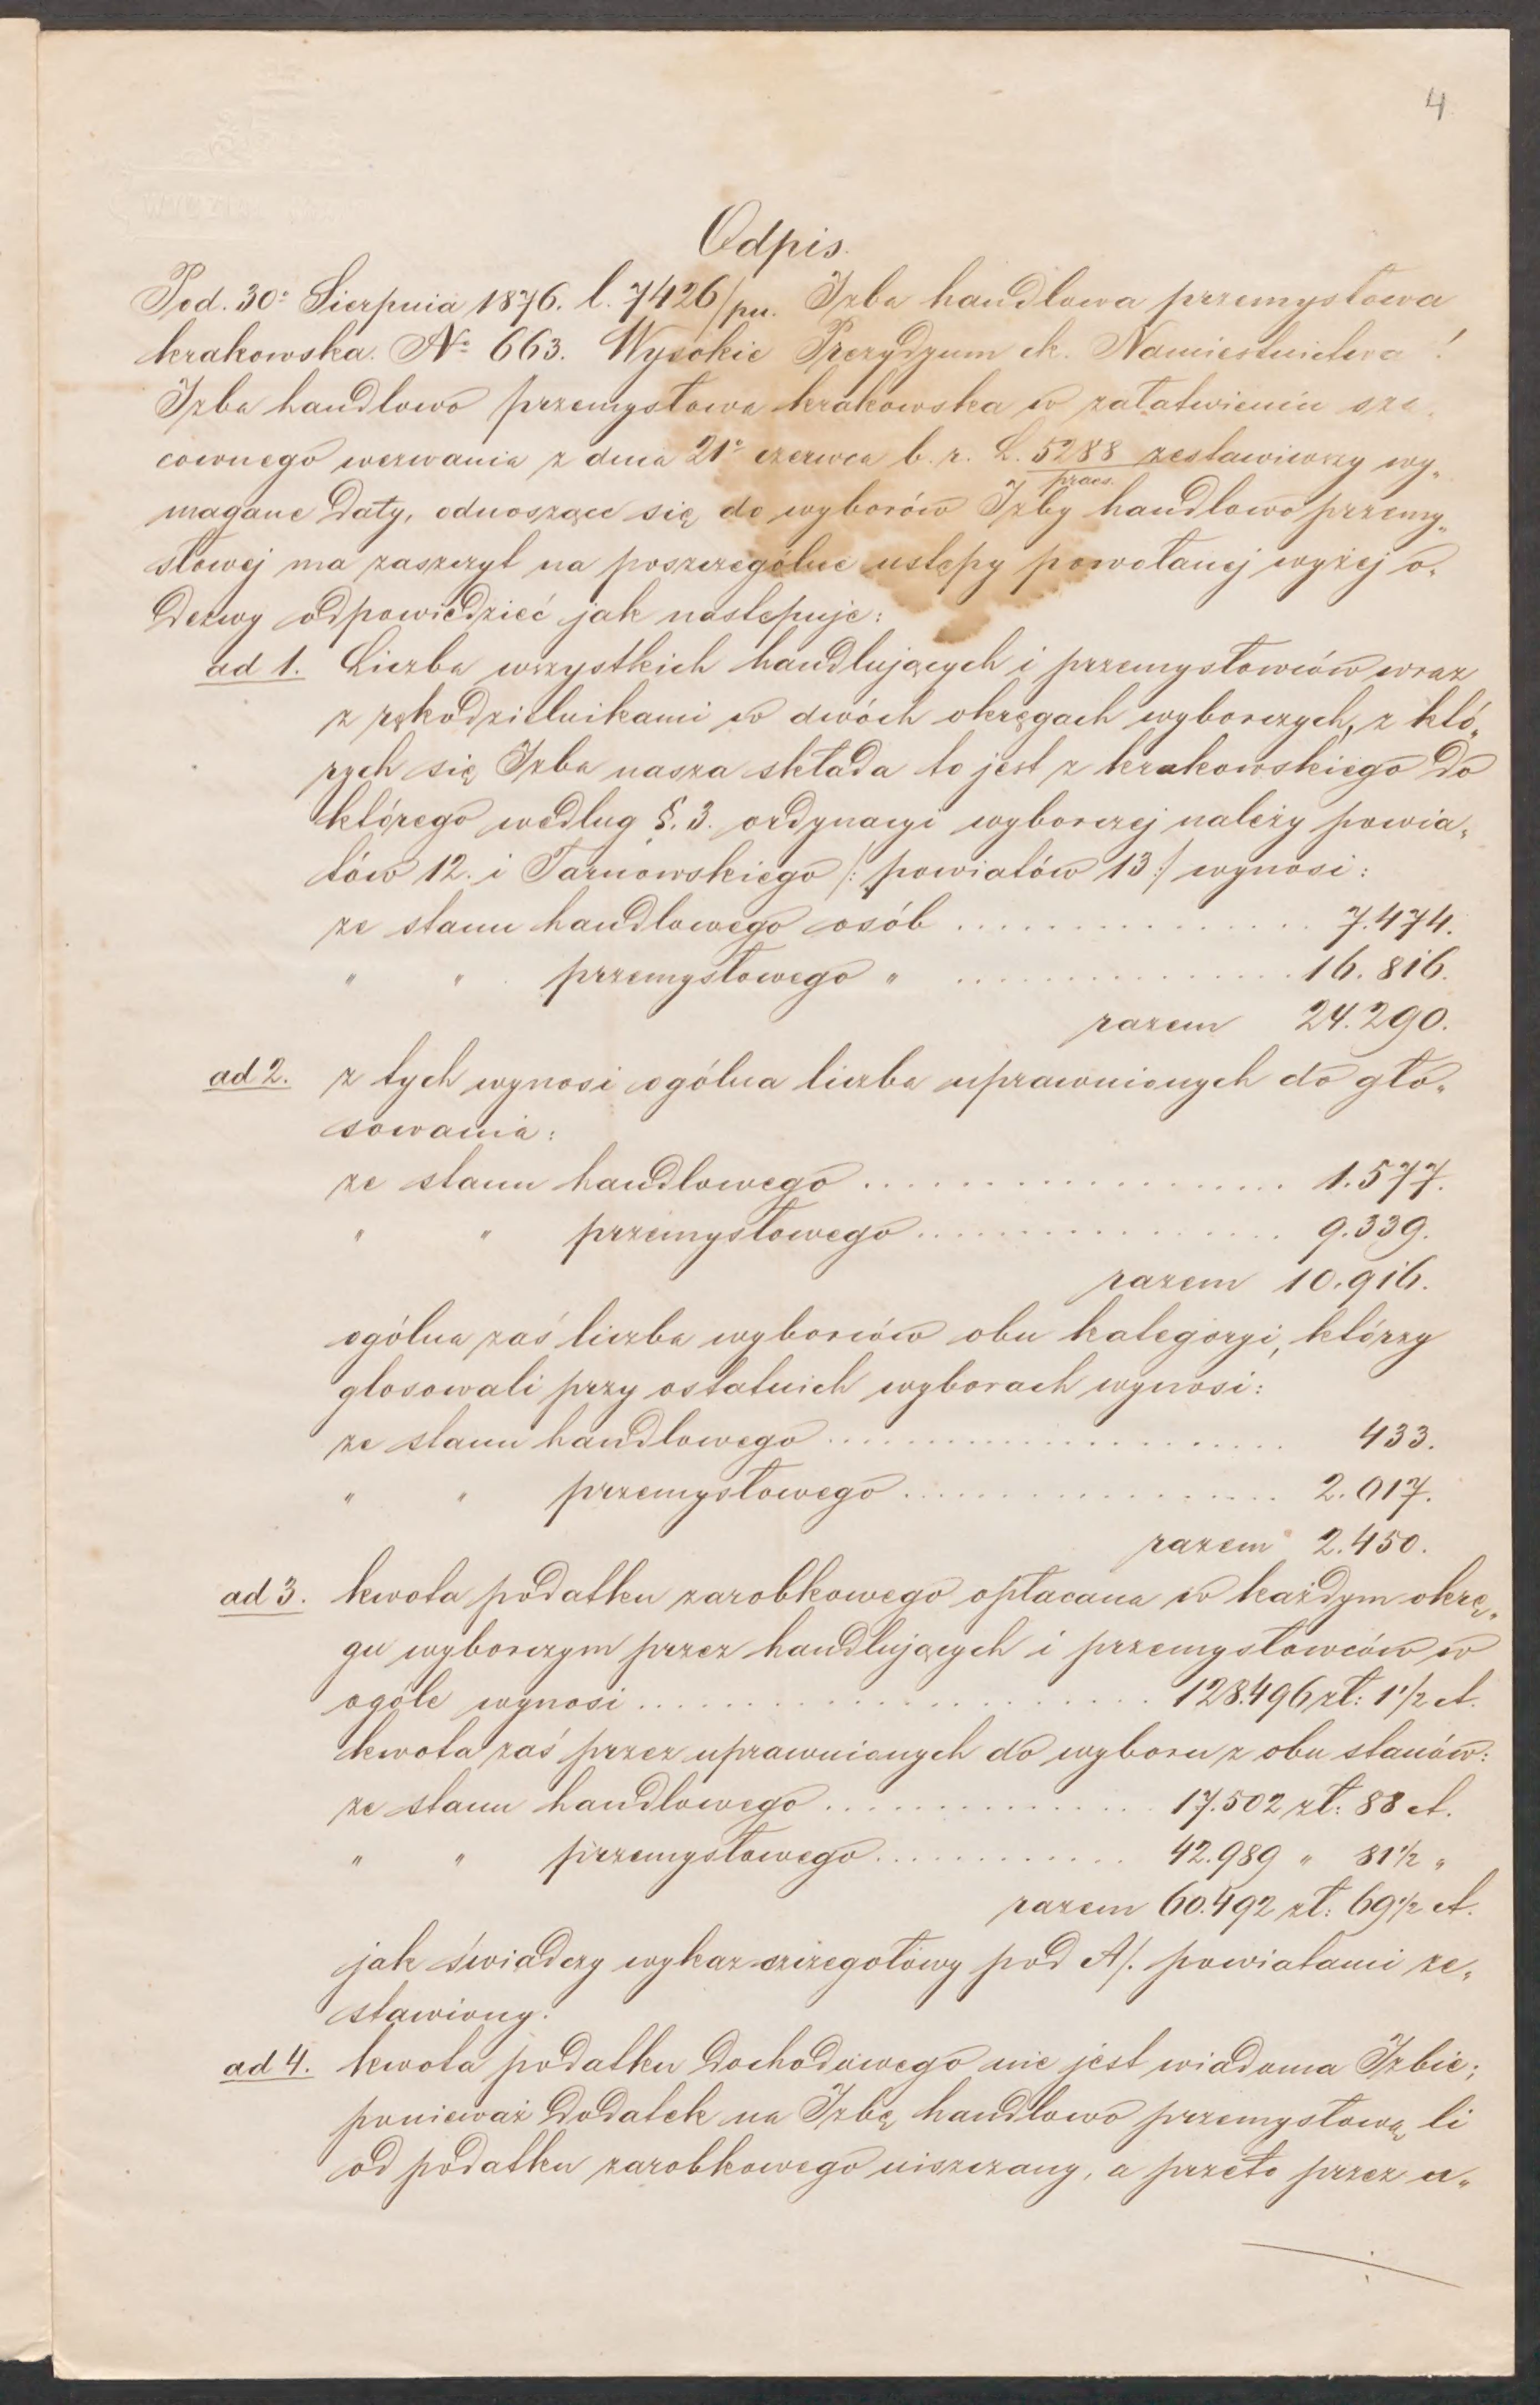 4
Odpis.
Pod. 30º Sierpnia 1876. l. 7426/pn. Izba handlowa przemysłowa
krakowska. Nº 663. Wysokie Prezydyum ck. Namiestnictwa!
Izba handlowo przemysłowa krakowska w załatwieniu sza„
cownego wezwania z dnia 21º czerwca b. r. L. 5288 zestawiwszy wy„
praes.
magane daty, odnoszące się do wyborów Izby handlowo przemy„
słowej ma zaszczyt na poszczególne ustępy powołanej wyżej o„
dezwy odpowiedzieć jak następuje:
ad 1. Liczba wszystkich handlujących i przemysłowców wraz
z rękodzielnikami w dwóch okręgach wyborczych, z któ„
rych się Izba nasza składa to jest z krakowskiego do
którego według §. 3. ordynacyi wyborczej należy powia„
tów 12. i Tarnowskiego /: powiatów 13 :/ wynosi:
ze stanu handlowego osób ............... 7.474.
" " przemysłowego " ............... 16.816.
razem 24.290.
ad 2. z tych wynosi ogólna liczba uprawnionych do gło„
sowania:
ze stanu handlowego .................. 1.577.
" " przemysłowego ............... 9.339.
razem 10.916.
ogólna zaś liczba wyborców obu kategoryi, którzy
głosowali przy ostatnich wyborach wynosi:
ze stanu handlowego ..................... 433.
" " przemysłowego .................. 2.017.
razem 2.450.
ad 3. kwota podatku zarobkowego opłacana w każdym okrę„
gu wyborczym przez handlujących i przemysłowców w
ogóle wynosi ..................... 128.496 zł: 1 1/2 ct.
kwota zaś przez uprawnionych do wyboru z obu stanów:
ze stanu handlowego ............... 17.502 zł: 88 ct.
" " przemysłowego ............ 42.989 " 81 1/2 "
razem 60.492 zł: 69 1/2 ct.
jak świadczy wykaz szczegołowy pod A/. powiatami ze„
stawiony.
ad 4. kwota podatku dochodowego nie jest wiadoma Izbie;
ponieważ dodatek na Izbę handlowo przemysłową li
od podatku zarobkowego uiszczany, a przeto przez u„